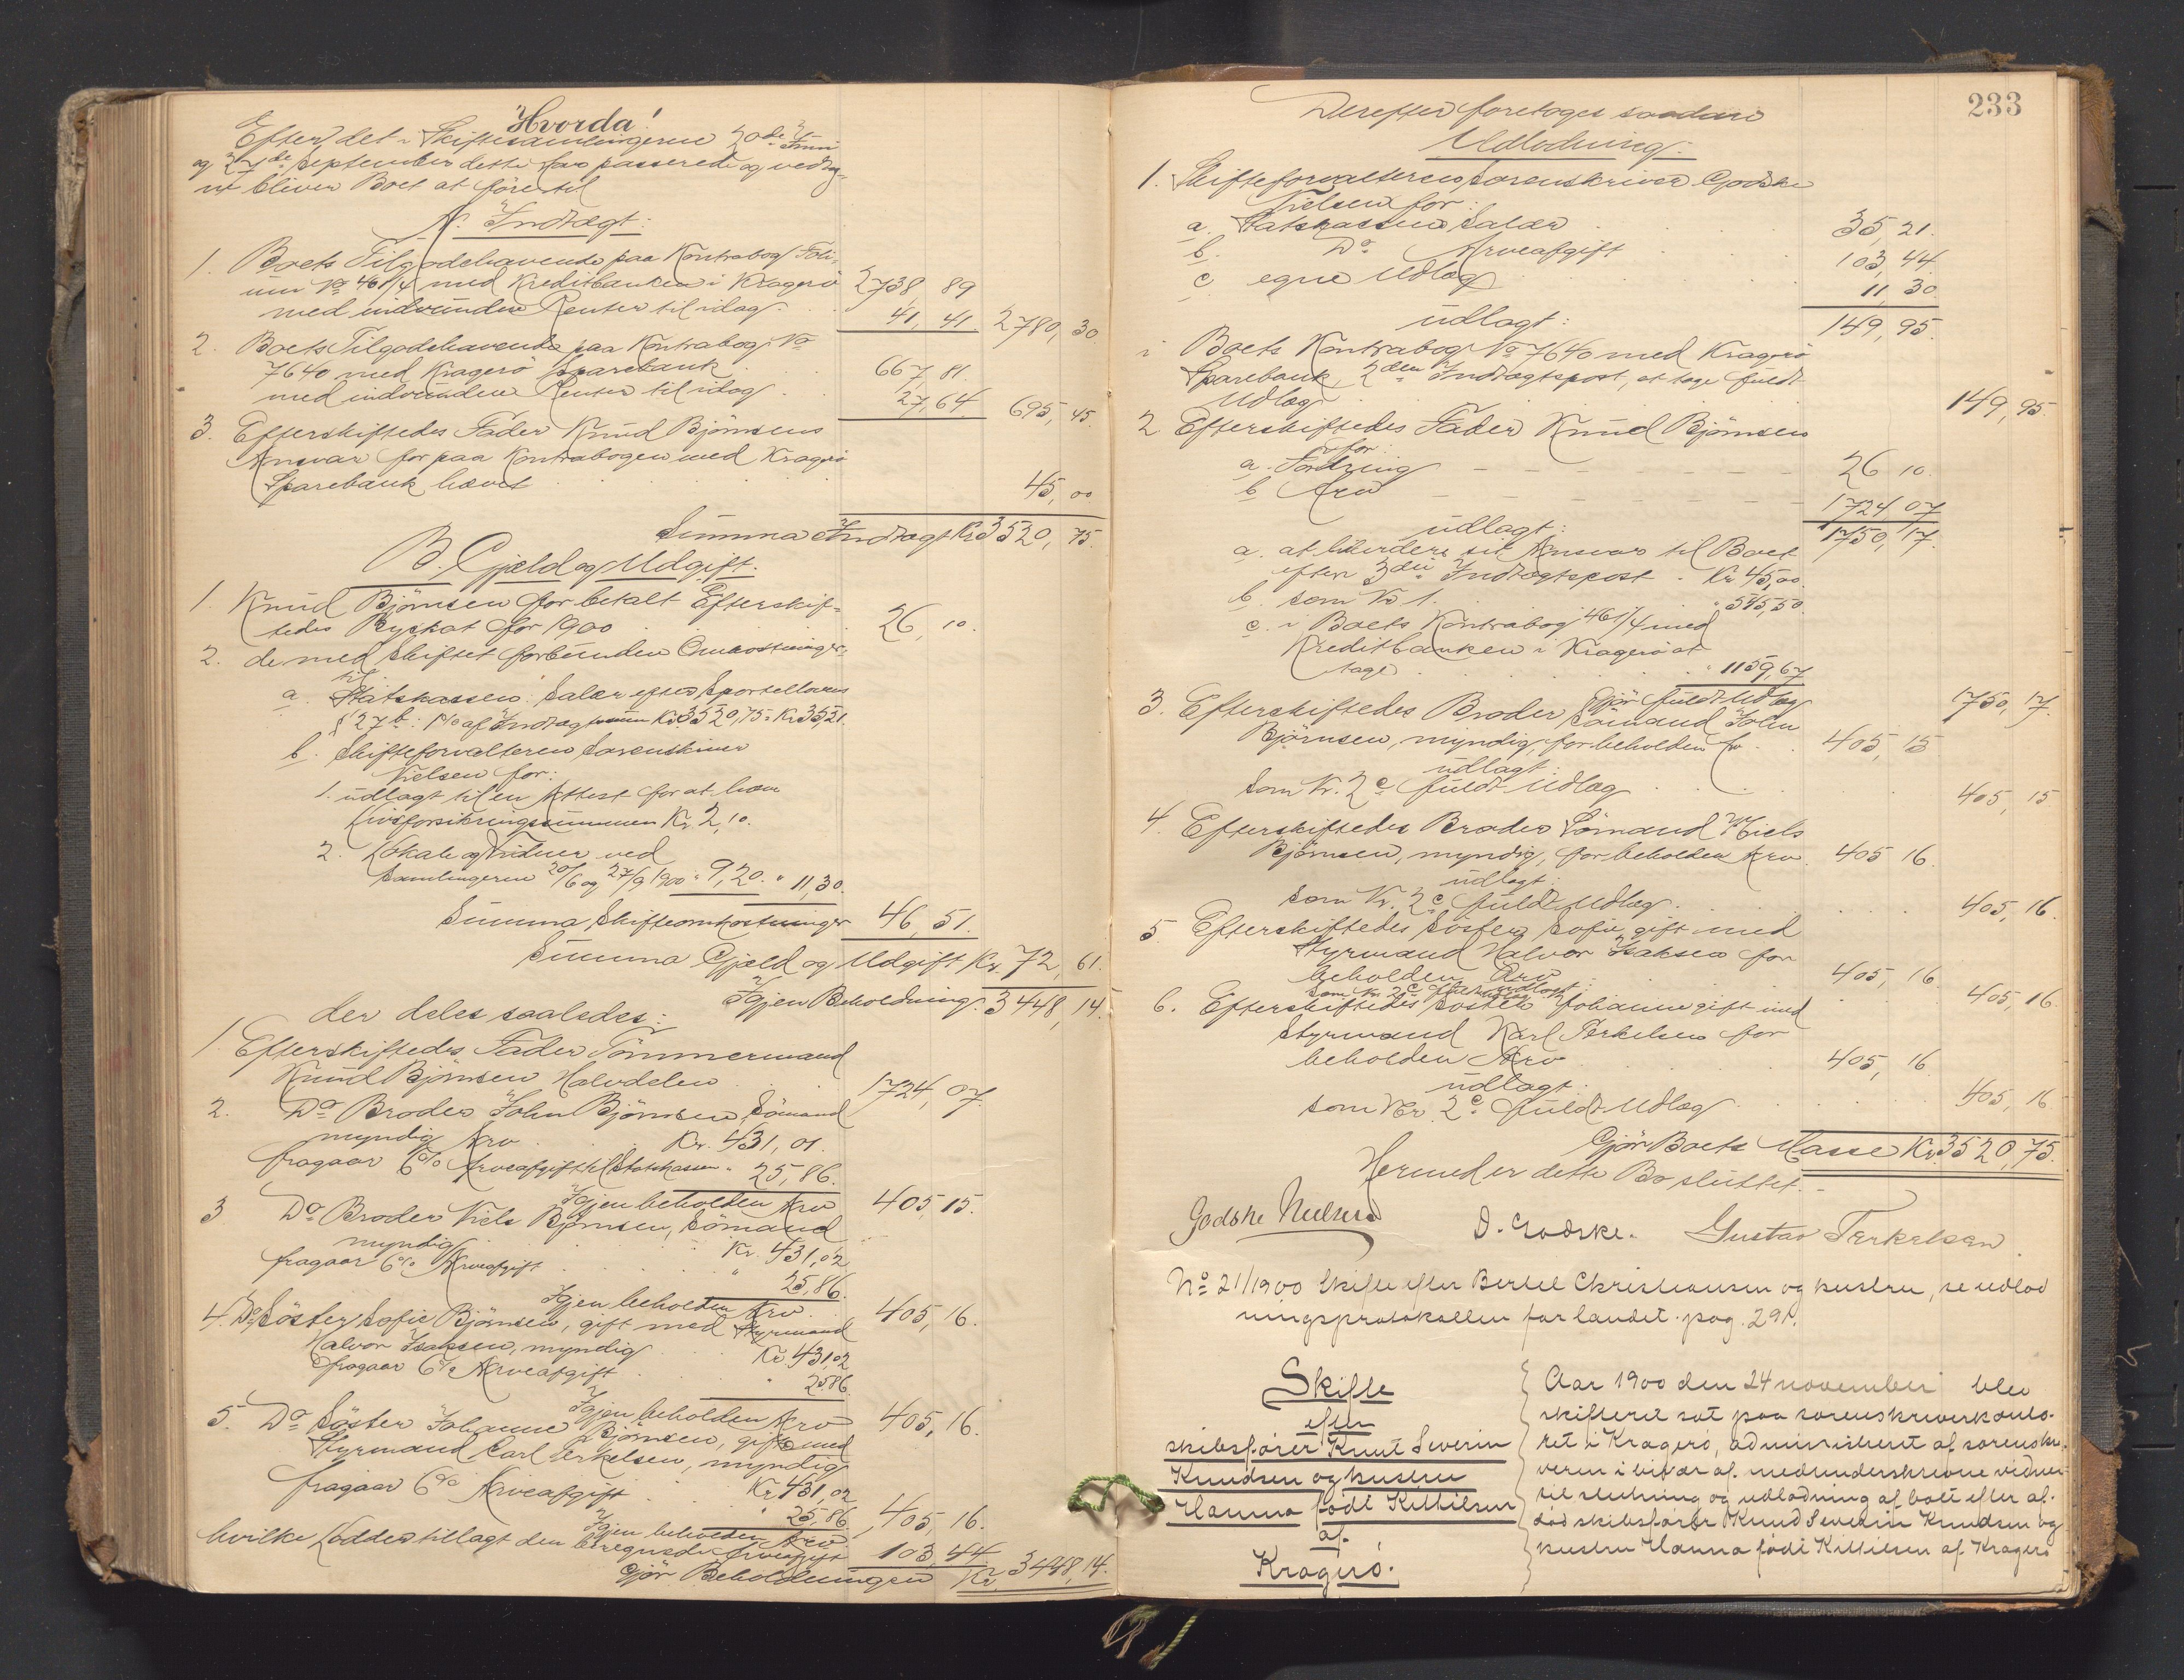 Hvorda!
Efter det i Skiftesamlingerne 20de Juni
og 27de September dette Aar passerede og vedtag-
ne bliver Boet at före til
A. Indtægt:
1. Boets Tilgodehavende paa Kontrabog Foli-
um No 461/4 med Kreditbanken i Kragerö 2738, 89
med indvundne Renter til idag. 41, 41. 2780, 30.
2. Boets Tilgodehavende paa Kontrabog No
7640 med Kragerö Sparebank 667, 81.
med indvundne Renter til idag 27, 64. 695, 45.
3. Efterskiftedes Fader Knud Björnsens
Ansvar for paa Kontrabogen med Kragerö
Sparebank hævet 45, 00
Summa Indtægt Kr 3520, 75.
B. Gjæld og Udgift.
1. Knud Björnsen for betalt Efterskif-
tedes Byskat for 1900 26, 10.
2. de med Skiftet forbundne Omkostninger
til:
a. Statskassen: Salær efter Sportelloven
§ 27 b: 1% af Indtægtssummen Kr 3520,75 = Kr 35,21.
b. Skifteforvalteren Sorenskriver
Nielsen for:
1. udlagt til en Attest for at hæve
Livsforsikringssummen Kr. 2,10.
2. Lokale og Vidner ved
Samlingerne 20/6 og 27/9 1900 " 9,20. " 11,30.
Summa Skifteomkostninger 46, 51.
Summa Gjæld og Udgift Kr. 72, 61.
Igjen Beholdning. 3448, 14.
der deles saaledes:
1. Efterskiftedes Fader Tömmermand
Knud Björnsen Halvdelen 1724, 07.
2. Do Broder John Björnsen, Sömand
myndig Arv Kr. 431,01.
fragaar 6% Arveafgift til Statskassen " 25,86.
Igjen beholden Arv 405, 15.
3 Do Broder Niels Björnsen, Sömand
myndig Kr. 431,02
fragaar 6% Arveafgift " 25,86.
Igjen beholden Arv 405, 16.
4. Do Söster Sofie Björnsen, gift med Styrmand
Halvor Isaksen, myndig Kr 431,02
fragaar 6% Arveafgift " 25,86
Igjen beholden Arv 405, 16.
5. Do Söster Johanne Björnsen, gift med
Styrmand Carl Terkelsen, myndig
fragaar 6% Arveafgift Kr 431,02
" 25,86
Igjen beholden Arv 405, 16.
hvilke Lodder tillagt den beregnede Arveafgift 103, 44
Gjör Beholdningen Kr 3448, 14.
233
Derefter foretoges saadan
Udlodning:
1. Skifteforvalteren Sorenskriver Godske
Nielsen for:
a. Statskassens Salær 35, 21.
b. Do Arveafgift 103, 44
c. egne Udlæg 11, 30.
udlagt: 149, 95.
i Boets Kontrabog No 7640 med Kragerö
Sparebank, 2den Indtægtspost, at tage fuldt
Udlæg 149, 95.
2. Efterskiftedes Fader Knud Björnsen
for:
a. Fordring 26 10.
b. Arv 1724 07
udlagt: 1750, 17.
a. at likvidere sit Ansvar til Boet
efter 3die Indtægtspost Kr 45,00.
b. som No 1. " 545,50.
c. i Boets Kontrabog 461/4 med
Kreditbanken i Kragerö at
tage " 1159,67
Gjör fuldt Udlæg 1750, 17.
3. Efterskiftedes Broder Sömand John
Björnsen, myndig, for beholden Arv 405, 15
udlagt:
som Nr. 2 c. fuldt Udlæg 405, 15
4. Efterskiftedes Broder Sömand Niels
Björnsen, myndig, for beholden Arv 405 16.
udlagt:
som Nr. 2 c. fuldt Udlæg. 405, 16.
5. Efterskiftedes Söster Sofie gift med
Styrmand Halvor Isaksen for
beholden Arv 405, 16
udlagt
som Nr. 2 c fuldt Udlæg 405, 16.
6. Efterskiftedes Söster Johanne gift med
Styrmand Karl Terkelsen for
beholden Arv 405, 16
udlagt:
som Nr. 2 c. fuldt Udlæg 405, 16
Gjör Boets Masse Kr. 3520, 75.
Hermed er dette Bo sluttet.
Godske Nielsen D. Godske. Gustav Terkelsen.
No 21/1900 Skifte efter Bertel Christiansen og hustru, se udlod
ningsprotokollen for landet. pag. 291.
Skifte
efter
skibsfører Knut Severin
Knudsen og hustru
Hanna født Kittilsen
af
Kragerø.
Aar 1900 den 24 november blev
skifteret sat paa sorenskriverkonto-
ret i Kragerø, administreret af sorenskri-
veren i bivær af medunderskrevne vidner
til slutning og udlodning af boet efter af-
død skibsfører Knud Severin Knudsen og
hustru Hanna født Kittilsen af Kragerø